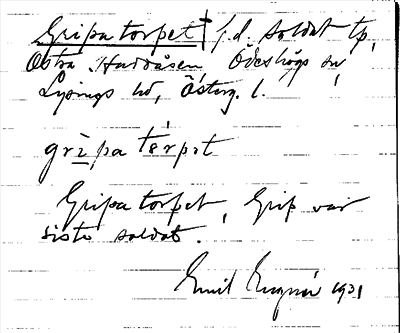 Gripatorpet † f.d. soldat tp,
Östra Huvåsen Ödeshögs sn,
Lysings hd, Österg. l.
gripa tårpet
Gripatorpet, Grip var
siste soldat.
Emil 1931